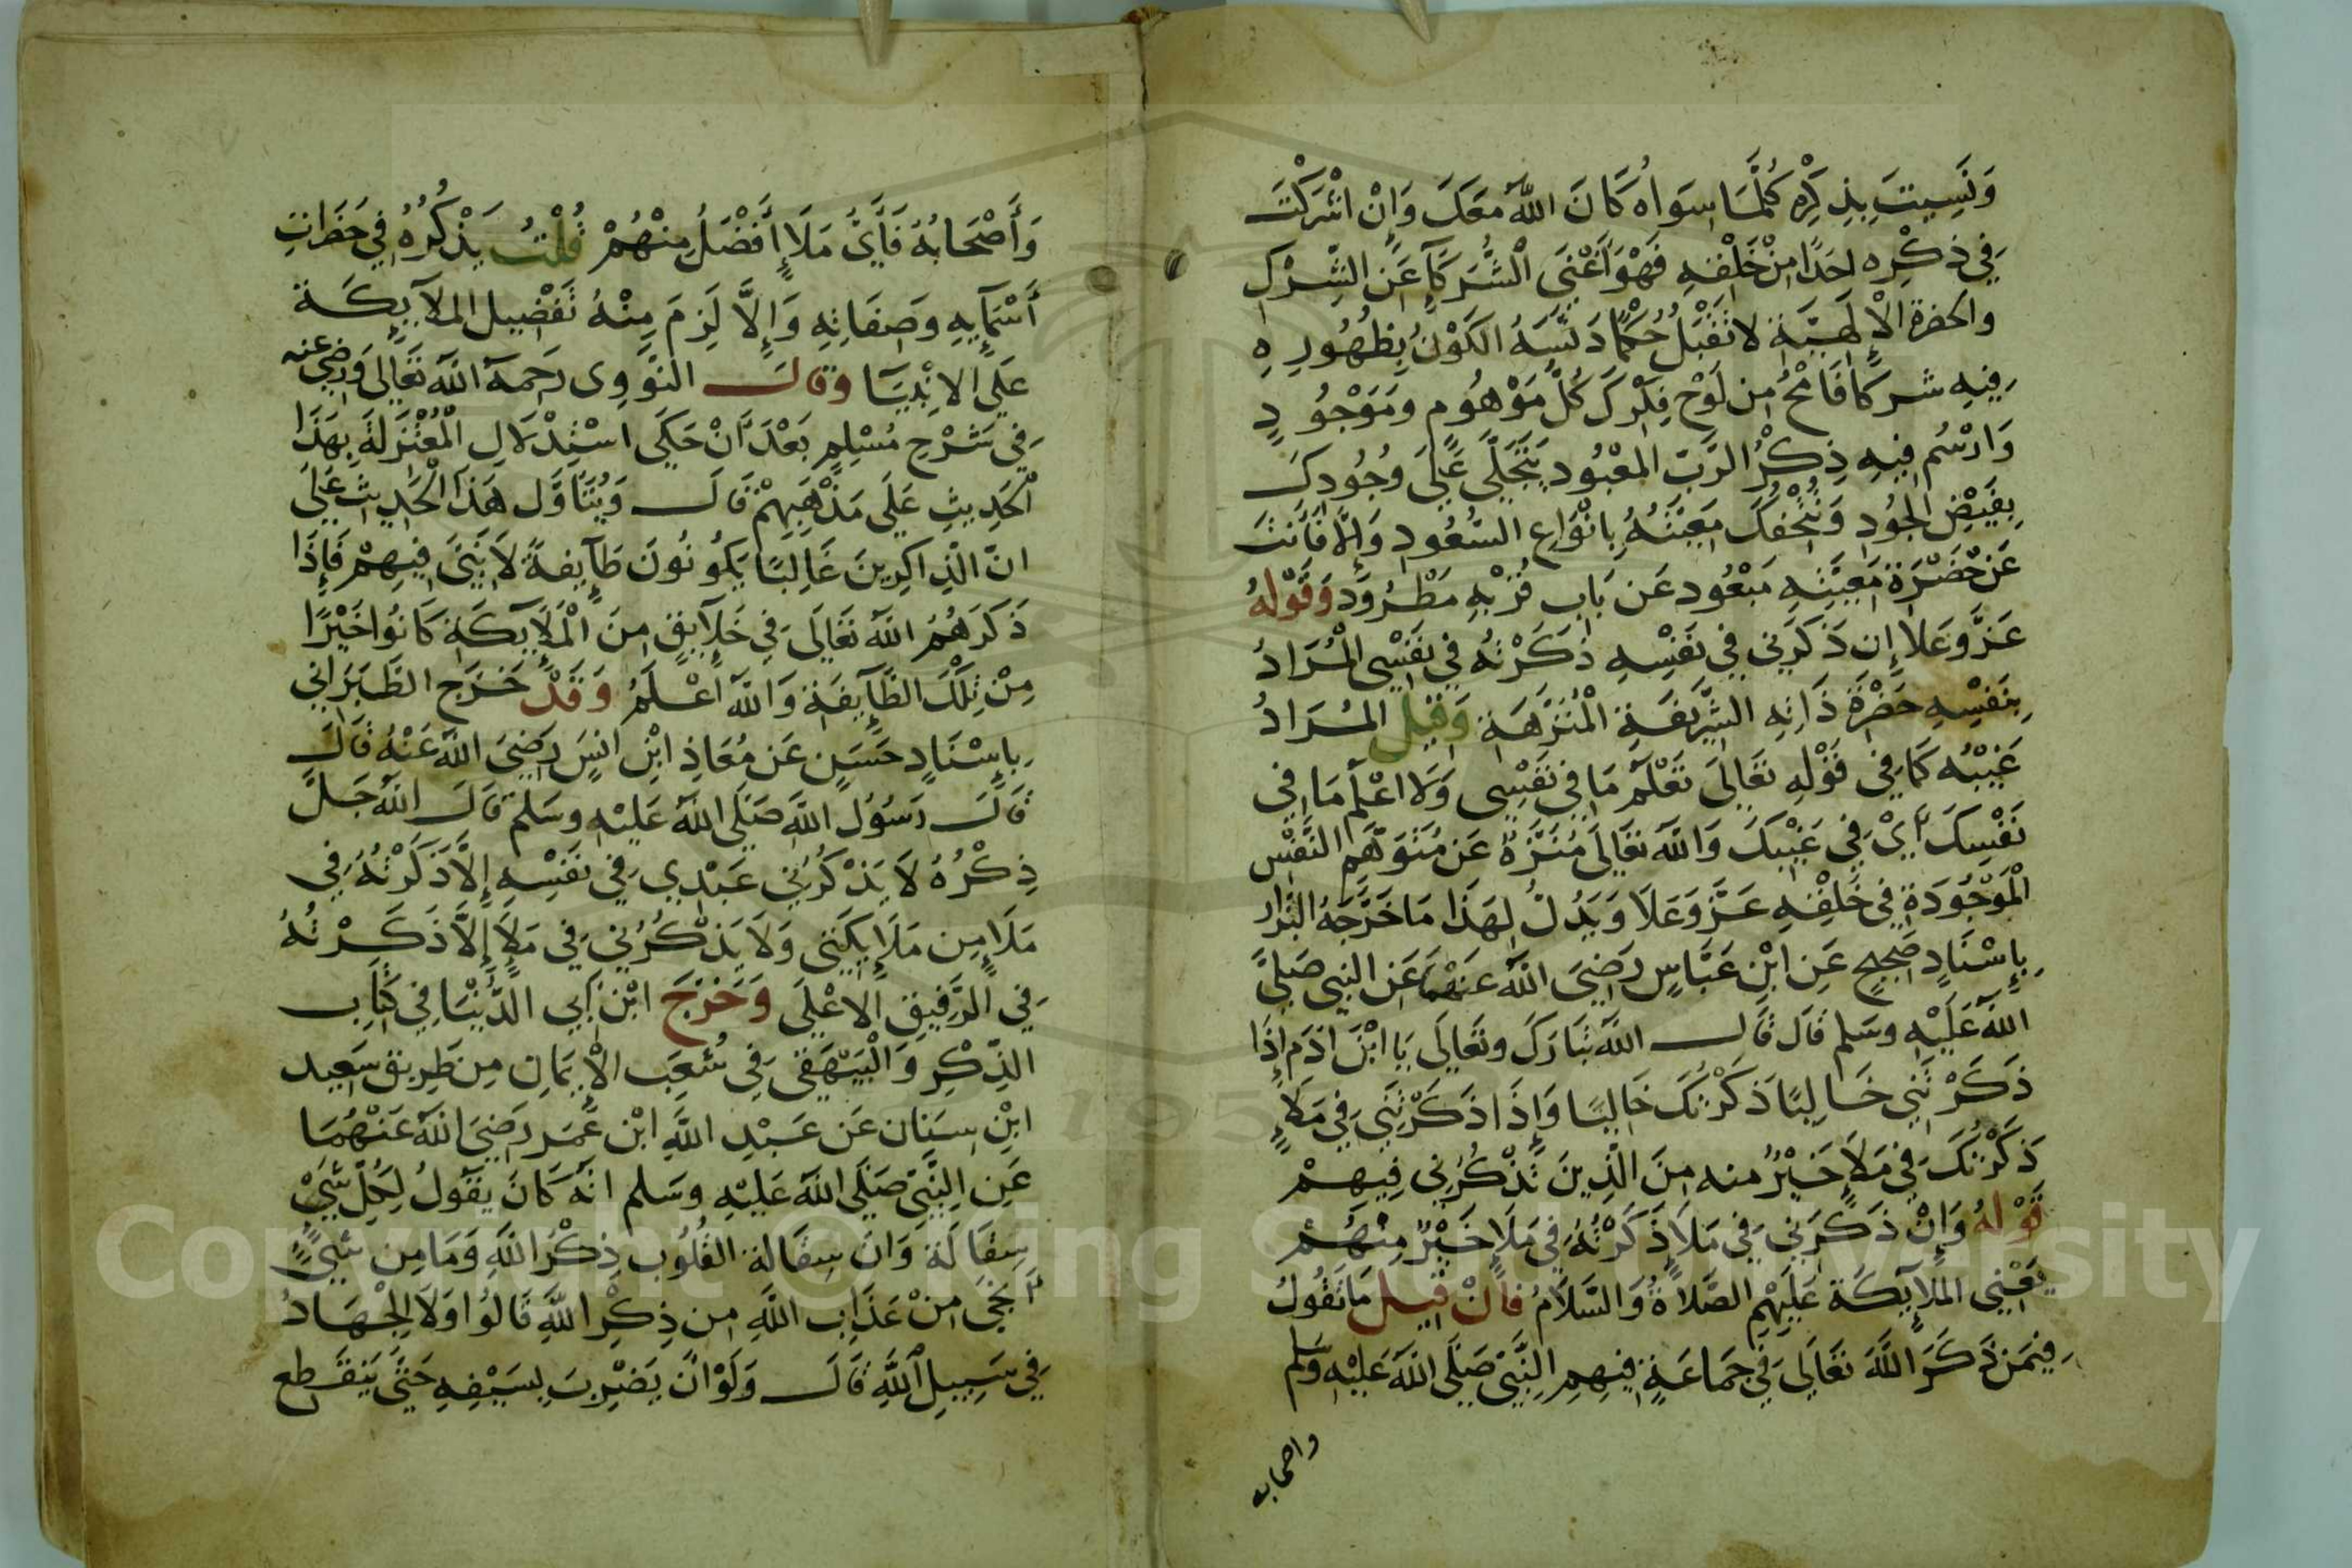 وَنَسِيتَ بِذِكْرِهِ كُلَّمَا سِوَاهُ كَانَ اللَّهُ مَعَكَ وَإِنْ اشْرَكْتَ
فِي ذِكْرِهِ احَدًا مِنْ خَلْقِهِ فَهْوَ أَغْنَى الْشُّرَكَآءِ عَنِ الشِّرْكِ
والحضرة الْإِلَهِيَّةِ لا تَقْبَلُ حُكْمًا دَنَّسَهُ الكَوْنُ بِظُهُورِهِ
فِيهِ شركا فَامْحُ مِن لَوْحِ فِكْرِكَ كُلَّ مَوْهُومٍ وَمَوْجُودٍ
وَارْسُم فِيهِ ذِكْرُ الرَّبِّ المَعْبُودِ يَتَجَلَّى عَلَى وُجُودِكَ
بِفَيْضِ الجُودِ وَتُتْحِفُكَ مَعِيَّتُهُ بِانْوَاعِ السُّعُودِ وَإِلَّا فَأَنْتَ
عَنْ حَضْرَةِ مَعِيَّتِهِ مَبْعُود عَن بَابِ قُرْبِهِ مَطْرُود وَقَوْلُهُ
عَزَّ وَعَلا إِن ذَكَرَنِي فِي نَفْسِهِ ذَكَرْتُهُ فِي نَفْسِي الْمُرَادُ
بِنَفْسِهِ حَضْرَةُ ذَاتِهِ الشَّرِيفَةِ الْمُنَزَّهَةِ وَقِيلَ المُرَادُ
غَيْبُه كَمَا فِي قَوْلِهِ تَعَالَى تَعْلَمُ مَا فِي نَفْسِي وَلَا اعْلَمُ مَا فِي
نَفْسِكَ أَيْ فِي غَيْبِكَ وَاللَّهُ تَعَالَى مُنَزَّهٌ عَن مُتَوَهَّمِ النَّفْسِ
الْمَوْجُودَةِ فِي خَلْقِهِ عَزَّ وَعَلَا وَيَدُلُّ لِهَذَا مَا خَرَّجَهُ البَزَّار
بِإِسْنَادٍ صَحِيحٍ عَنِ ابْنِ عَبَّاسٍ رَضِيَ اللَّهُ عَنْهُمَا عَنِ النبي صَلَّى
اللَّهُ عَلَيْهِ وسَلم قَالَ قَالَ اللَّهُ تَبَارَكَ وتَعَالَى يَا ابْنَ ادَم إِذَا
ذَكَرْتَنِي خَالِيًا ذَكَرْتُكَ خَالِيًا وَإِذَا ذَكَرْتَنِي فِي مَلَإٍ
ذَكَرْتُكَ فِي مَلَإٍ خَيْرٌ منه مِنَ الَّذِينَ تَذْكُرُنِي فِيهِمْ
قَوْلهُ وَإِنْ ذَكَرَنِي فِي مَلَإٍ ذَكَرْتُهُ فِي مَلَإٍ خَيْرٌ مِنْهُمْ
يَعْنِي المَلَآئِكَة عَلَيْهِمِ الصَّلاَةُ وَالسَّلَامُ فَإِنْ قِيلَ مَا تَقُولُ
فِيمَنْ ذَكَرَ اللَّهَ تَعَالَى فِي جَمَاعَةٍ فِيهِمِ النَّبِيّ صَلَّى اللَّهُ عَلَيْهِ وَسَلم
واصحابه
وَأَصْحَابُهُ فَأَيُّ مَلَإٍ أَفْضَلُ مِنْهُمْ قُلْتُ يَذْكُرُهُ فِي حَضَرَاتِ
أَسْمَآيِهِ وَصِفَاتِهِ وَإِلَّا لَزِمَ مِنْهُ تَفْضِيلِ المَلَآيِكَةِ
عَلَى الانْبِيَا وَقَالَ النَّوَوِى رَحِمَهُ اللَّهُ تَعَالَى وَرَضِيَ عنه
فِي شَرْحِ مُسْلِمٍ بَعْدَ أَنْ حَكَى اسْتِدْلَالِ الْمُعْتَزِلَةِ بِهَذَا
الْحَدِيثِ عَلَى مَذْهَبِهِمْ قَالَ وَيُتَأَوَّل هَذَا الْحَدِيث عَلَى
انّ الذِاكِرِينَ غَالِبًا يَكُونُونَ طَآيِفةً لَا نَبِيَّ فِيهِمْ فَإِذَا
ذَكَرَهُمُ اللَّهُ تَعَالَى فِي خَلَآيِقٍ مِنَ الْمَلَآيِكَةِ كَانُوا خَيْرًا
مِنْ تِلْكَ الطَّآيِفَةِ وَاللَّهُ اعْلَمُ وَقَدْ خَرَج الطَّبَرَانِي
بِإِسْنَادٍ حَسَنٍ عَن مُعَاذِ ابْنِ انَسٍ رَضِيَ اللَّهُ عَنْهُ قَالَ
قَالَ رَسُولُ اللَّهِ صَلَّى اللَّهُ عَلَيْهِ وسَلم قَالَ اللَّهُ جَلَّ
ذِكْرُهُ لَا يَذْكُرُنِي عَبْدِي فِي نَفْسِهِ إِلَّا ذَكَرْتُهُ فِي
مَلَإٍ مِن مَلَايِكَتِي وَلَا يَذْكُرُنِي فِي مَلَإٍ إِلَّا ذَكَرْتُهُ
فِي الرَّفِيقِ الاعْلَى وَخَرَّجَ ابْن أَبِي الدُّنْيَا فِي كِتَابِ
الذِّكْرِ وَالْبَيْهَقِي فِي شُعَبِ الْإِيمَانِ مِن طَرِيقِ سَعِيد
ابْنِ سِنَان عَن عَبْدِ اللَّهِ ابْن عُمَر رَضِيَ اللَّهُ عَنْهُمَا
عَنِ النَّبِيِّ صَلَّى اللَّهُ عَلَيْهِ وسَلم انّهُ كَانَ يَقُولُ لِكُلِّ شَيْءٍ
سِقَالَة وَانّ سِقَالة القُلُوب ذِكْرُ اللَّهِ وَمَا مِن شَيْءٍ
أَنْجَى مِنْ عَذَابِ اللَّهِ مِن ذِكْرِ اللَّهِ قَالُوا وَلَا الْجِهَادُ
فِي سَبِيلِ اللَّهِ قَالَ وَلَوْ انْ يَضْرِبَ بِسَيْفِهِ حَتَّى يَنْقَطِع
Copyright © King Saud University
195